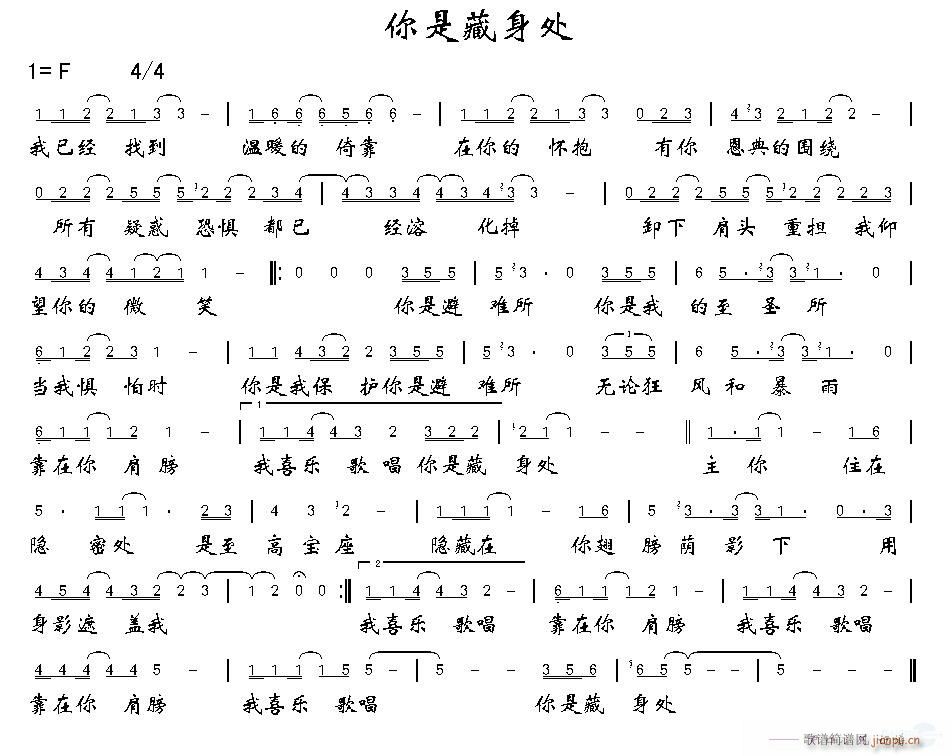 你是藏身处
1=F 4/4
1 1 2 2 1 3 3 - | 1 6 6 6 5 6 6 - | 1 1 2 2 1 3 3 0 2 3 | 4 3 2 1 2 2 - |
我已经 找到 温暖的 倚靠 在你的 怀抱 有你 恩典的围绕
0 2 2 2 5 5 5 2 2 2 3 4 | 4 3 3 4 4 3 4 3 3 - | 0 2 2 2 5 5 5 2 2 2 2 3 |
所有 疑惑 恐惧 都已 经溶 化掉 卸下 肩头 重担 我仰
4 3 4 4 1 2 1 1 - ‖: 0 0 0 3 5 5 | 5 3 · 0 3 5 5 | 6 5 · 3 3 1 · 0 |
望你的 微 笑 你是避 难所 你是我 的至 圣所
6 1 2 2 3 1 - | 1 1 4 3 2 2 3 5 5 | 5 3 · 0 3 5 5 | 6 5 · 3 3 1 · 0 |
当我惧 怕时 你是我保 护你是避 难所 无论狂 风和 暴雨
6 1 1 1 2 1 - | 1 1 4 4 3 2 3 2 2 | 2 1 1 - ‖ 1 · 1 1 - 1 6 |
靠在你 肩膀 我喜乐 歌唱 你是藏 身处 主 你 住在
5 · 1 1 1 · 2 3 | 4 3 2 - | 1 1 1 1 - 1 6 | 5 3 · 3 3 1 · 0 · 3 |
隐 密处 是至 高宝座 隐藏在 你翅 膀荫 影下 用
4 5 4 4 3 2 2 3 1 | 1 2 0 0 :‖ 1 1 4 4 3 2 - | 6 1 1 1 2 1 - | 1 1 4 4 3 2 - |
身影遮 盖我 我喜乐 歌唱 靠在你 肩膀 我喜乐 歌唱
4 4 4 4 4 5 - | 1 1 1 1 5 5 - | 5 - 3 5 6 | 6 5 5 - | 5 - - ‖
靠在你 肩膀 我喜乐 歌唱 你是藏 身处
歌谱简谱网
jianpu.cn